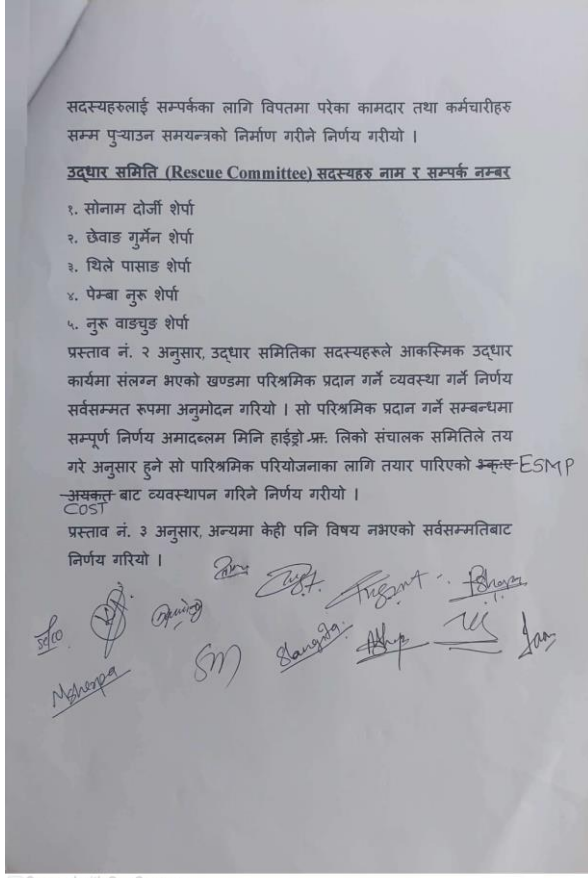 सदस्यहरुलाई सम्पर्कका लागि विपतमा परेका कामदार तथा कर्मचारीहरु
सम्म पुऱ्याउन समयन्त्रको निर्माण गरीने निर्णय गरीयो ।
उद्धार समिति (Rescue Committee) सदस्यहरु नाम र सम्पर्क नम्बर
१. सोनाम दोर्जी शेर्पा
२. छेवाङ गुर्मेन शेर्पा
३. थिले पासाङ शेर्पा
४. पेम्बा नुरू शेर्पा
५. नुरू वाङचुङ शेर्पा
प्रस्ताव नं. २ अनुसार, उद्धार समितिका सदस्यहरूले आकस्मिक उद्धार
कार्यमा संलग्न भएको खण्डमा परिश्रमिक प्रदान गर्ने व्यवस्था गर्ने निर्णय
सर्वसम्मत रूपमा अनुमोदन गरियो । सो परिश्रमिक प्रदान गर्ने सम्बन्धमा
सम्पूर्ण निर्णय अमादब्लम मिनि हाईड्रो प्रा. लिको संचालक समितिले तय
गरे अनुसार हुने सो पारिश्रमिक परियोजनाका लागि तयार पारिएको ESMP
COST बाट व्यवस्थापन गरिने निर्णय गरीयो ।
प्रस्ताव नं. ३ अनुसार, अन्यमा केही पनि विषय नभएको सर्वसम्मतिबाट
निर्णय गरियो ।